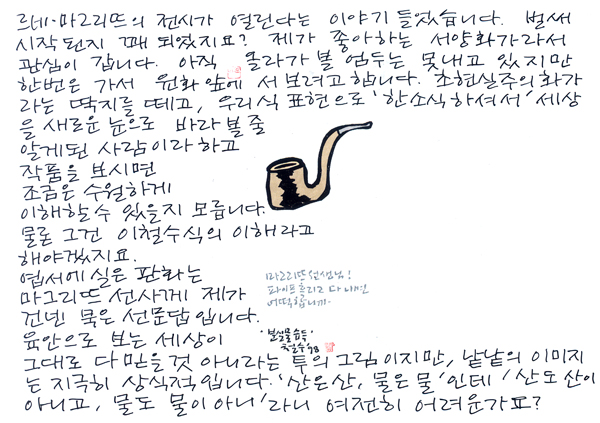 르네·마그리뜨의 전시가 열린다는 이야기 들었습니다. 벌써
시작된지 꽤 되었지요? 제가 좋아하는 서양화가라서
관심이 갑니다. 아직 올라가 볼 엄두는 못내고 있지만
한번은 가서 원화 앞에 서 보려고 합니다. 초현실주의 화가
라는 딱지를 떼고, 우리식 표현으로 '한소식 하셔서' 세상
을 새로운 눈으로 바라볼 줄
알게된 사람이라 하고
작품을 보시면
조금은 수월하게
이해할 수 있을지 모릅니다.
물론 그건 이철수식의 이해라고
해야겠지요.
엽서에 실은 판화는
마그리뜨 선사께 제가
건넨 묵은 선문답입니다.
육안으로 보는 세상이
그대로 다 믿을 것 아니라는 투의 그림이지만, 낱낱의 이미지
는 지극히 상식적입니다. '산은 산, 물은 물'인데 '산도 산이
아니고, 물도 물이 아니'라니 여전히 어려운가요?
마그리뜨 선생님!
파이프 흘리고 다니면
어떡합니까.
'분실물 습득'
철수 98